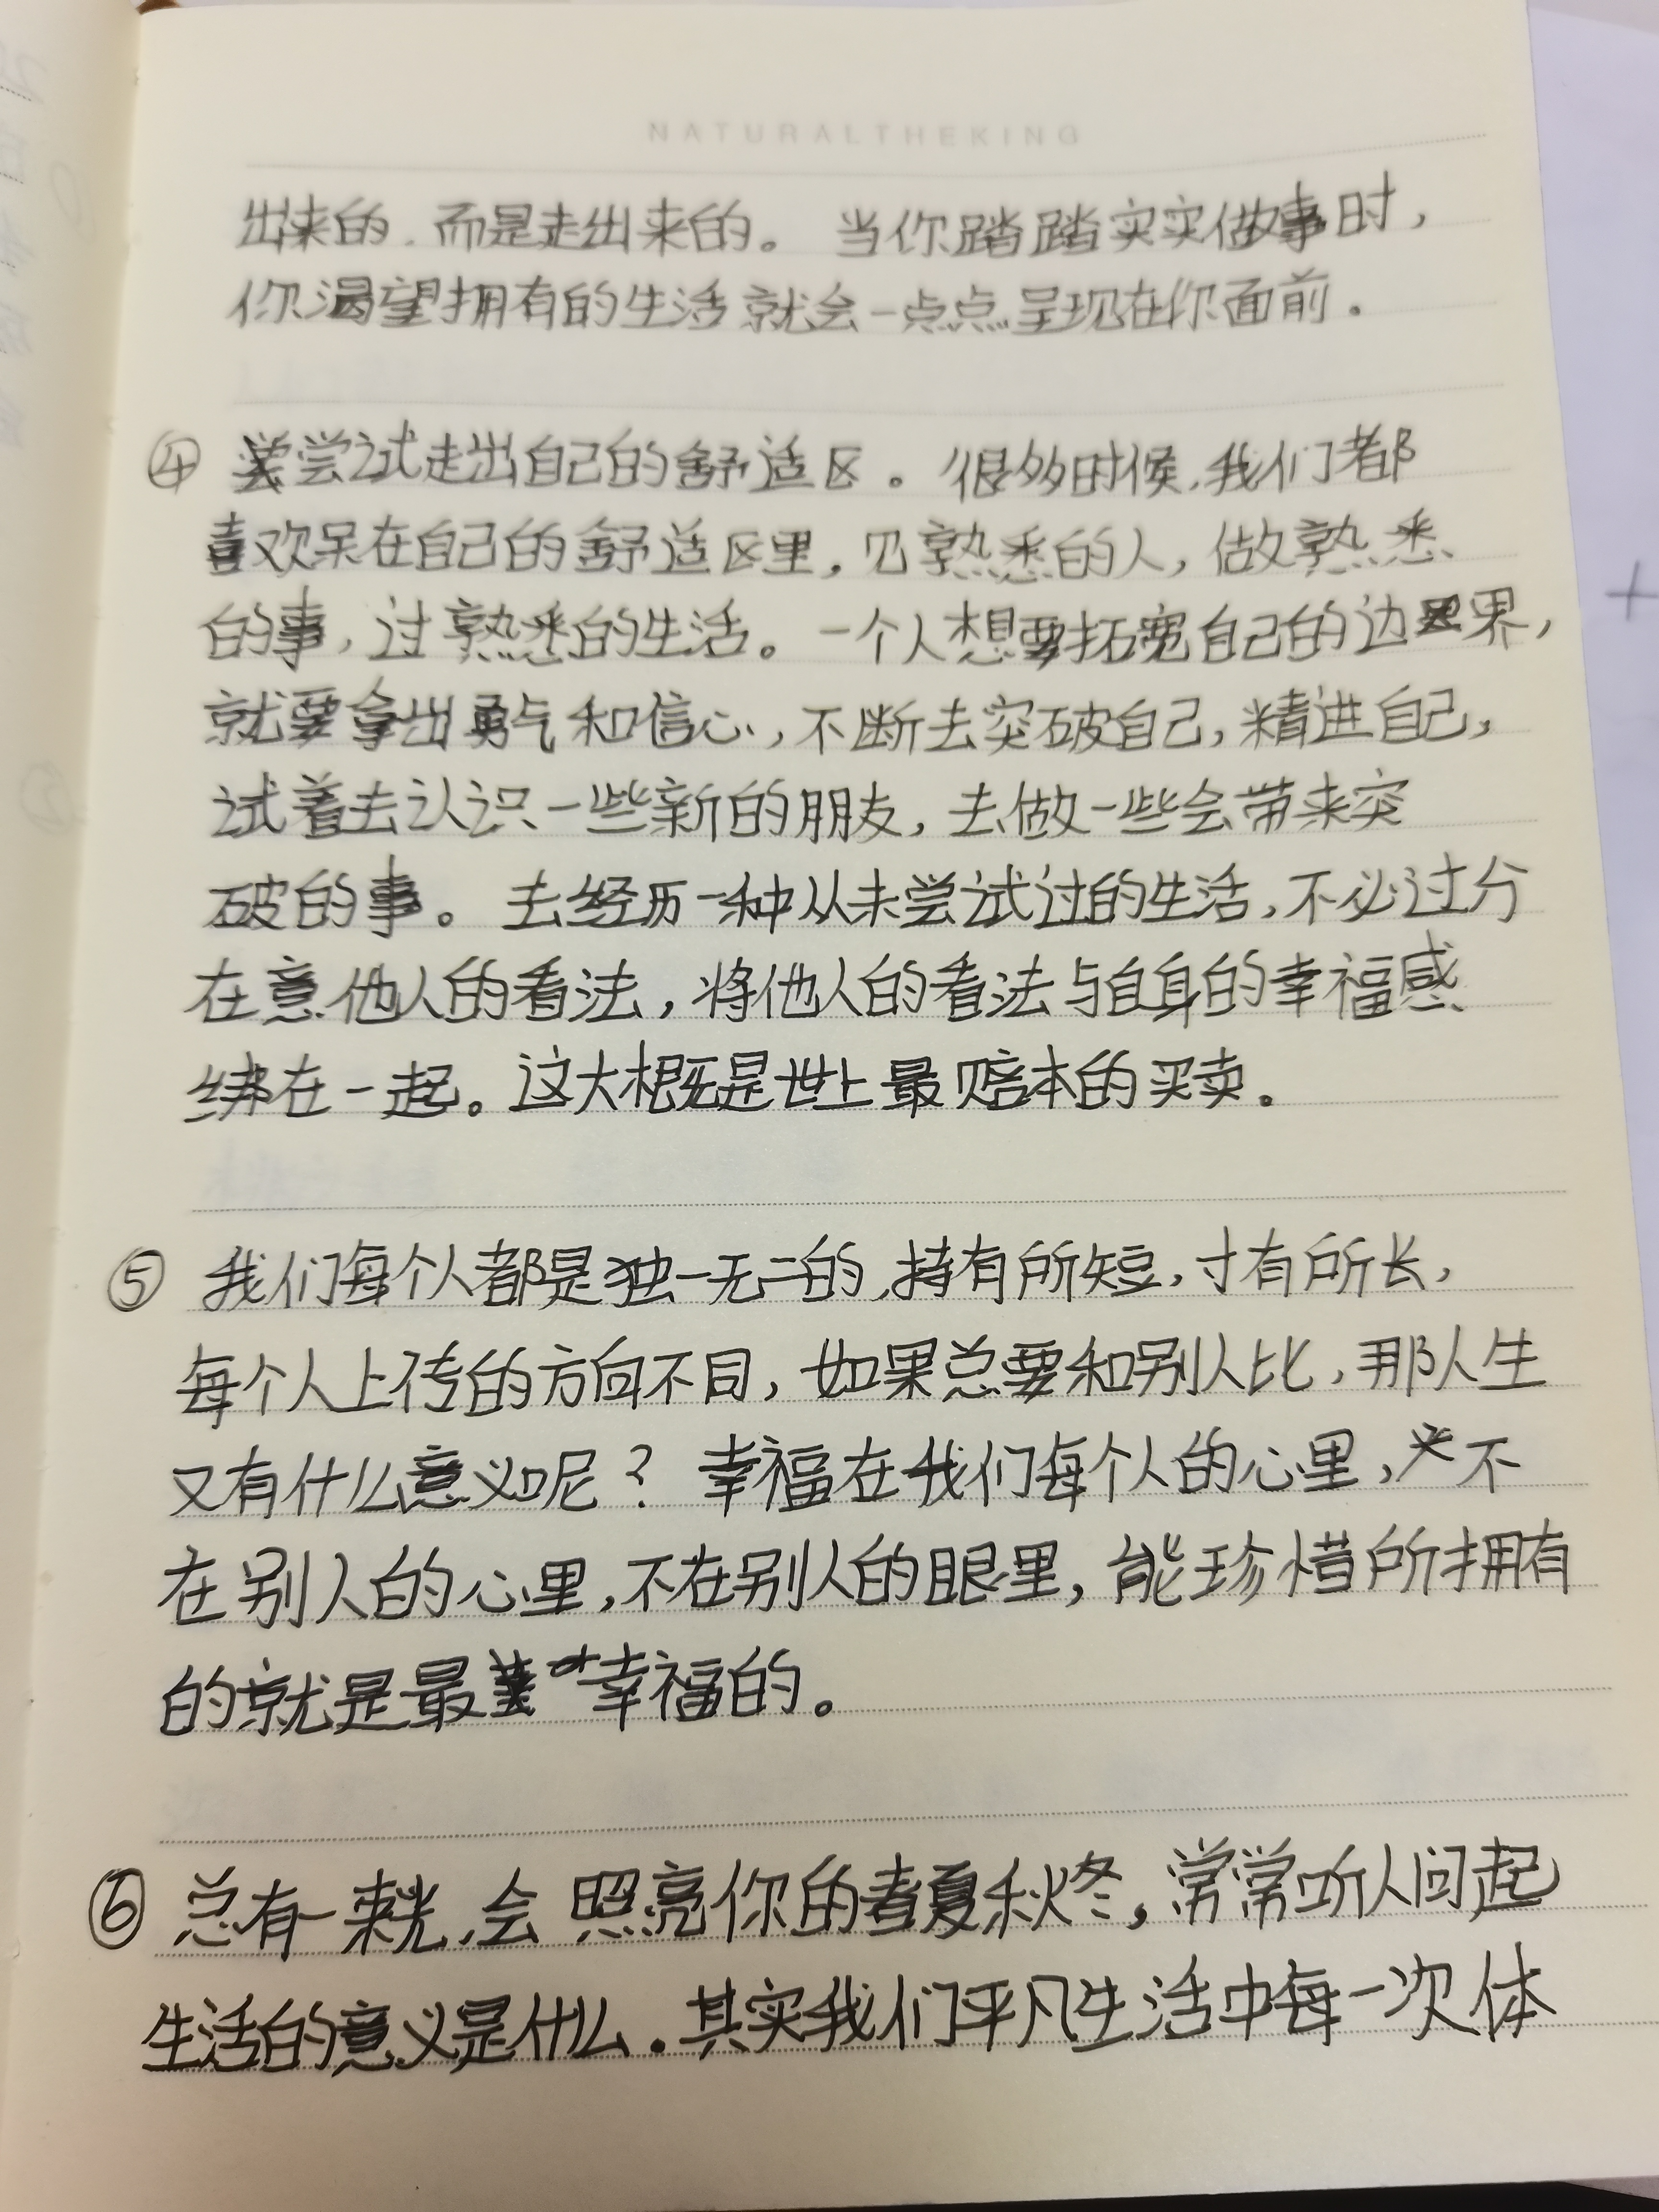 NATURALTHEKING
出来的.而是走出来的。当你踏踏实实做事时，
你渴望拥有的生活就会一点点呈现在你面前.
④ 尝试走出自己的舒适区。很多时候,我们都
喜欢呆在自己的舒适区里,见熟悉的人,做熟悉
的事,过熟悉的生活。一个人想要拓宽自己的边界,
就要拿出勇气和信心,不断去突破自己,精进自己,
试着去认识一些新的朋友,去做一些会带来突
破的事。去经历一种从未尝试过的生活,不必过分
在意他人的看法,将他人的看法与自身的幸福感
绑在一起。这大概是世上最赔本的买卖.
⑤ 我们每个人都是独一无二的,持有所短,寸有所长,
每个人上传的方向不同,如果总要和别人比,那人生
又有什么意义呢?幸福在我们每个人的心里,不
在别人的心里,不在别人的眼里,能珍惜所拥有
的就是最幸福的。
⑥ 总有一束光,会照亮你的春夏秋冬,常常听人问起
生活的意义是什么.其实我们平凡生活中每一次体